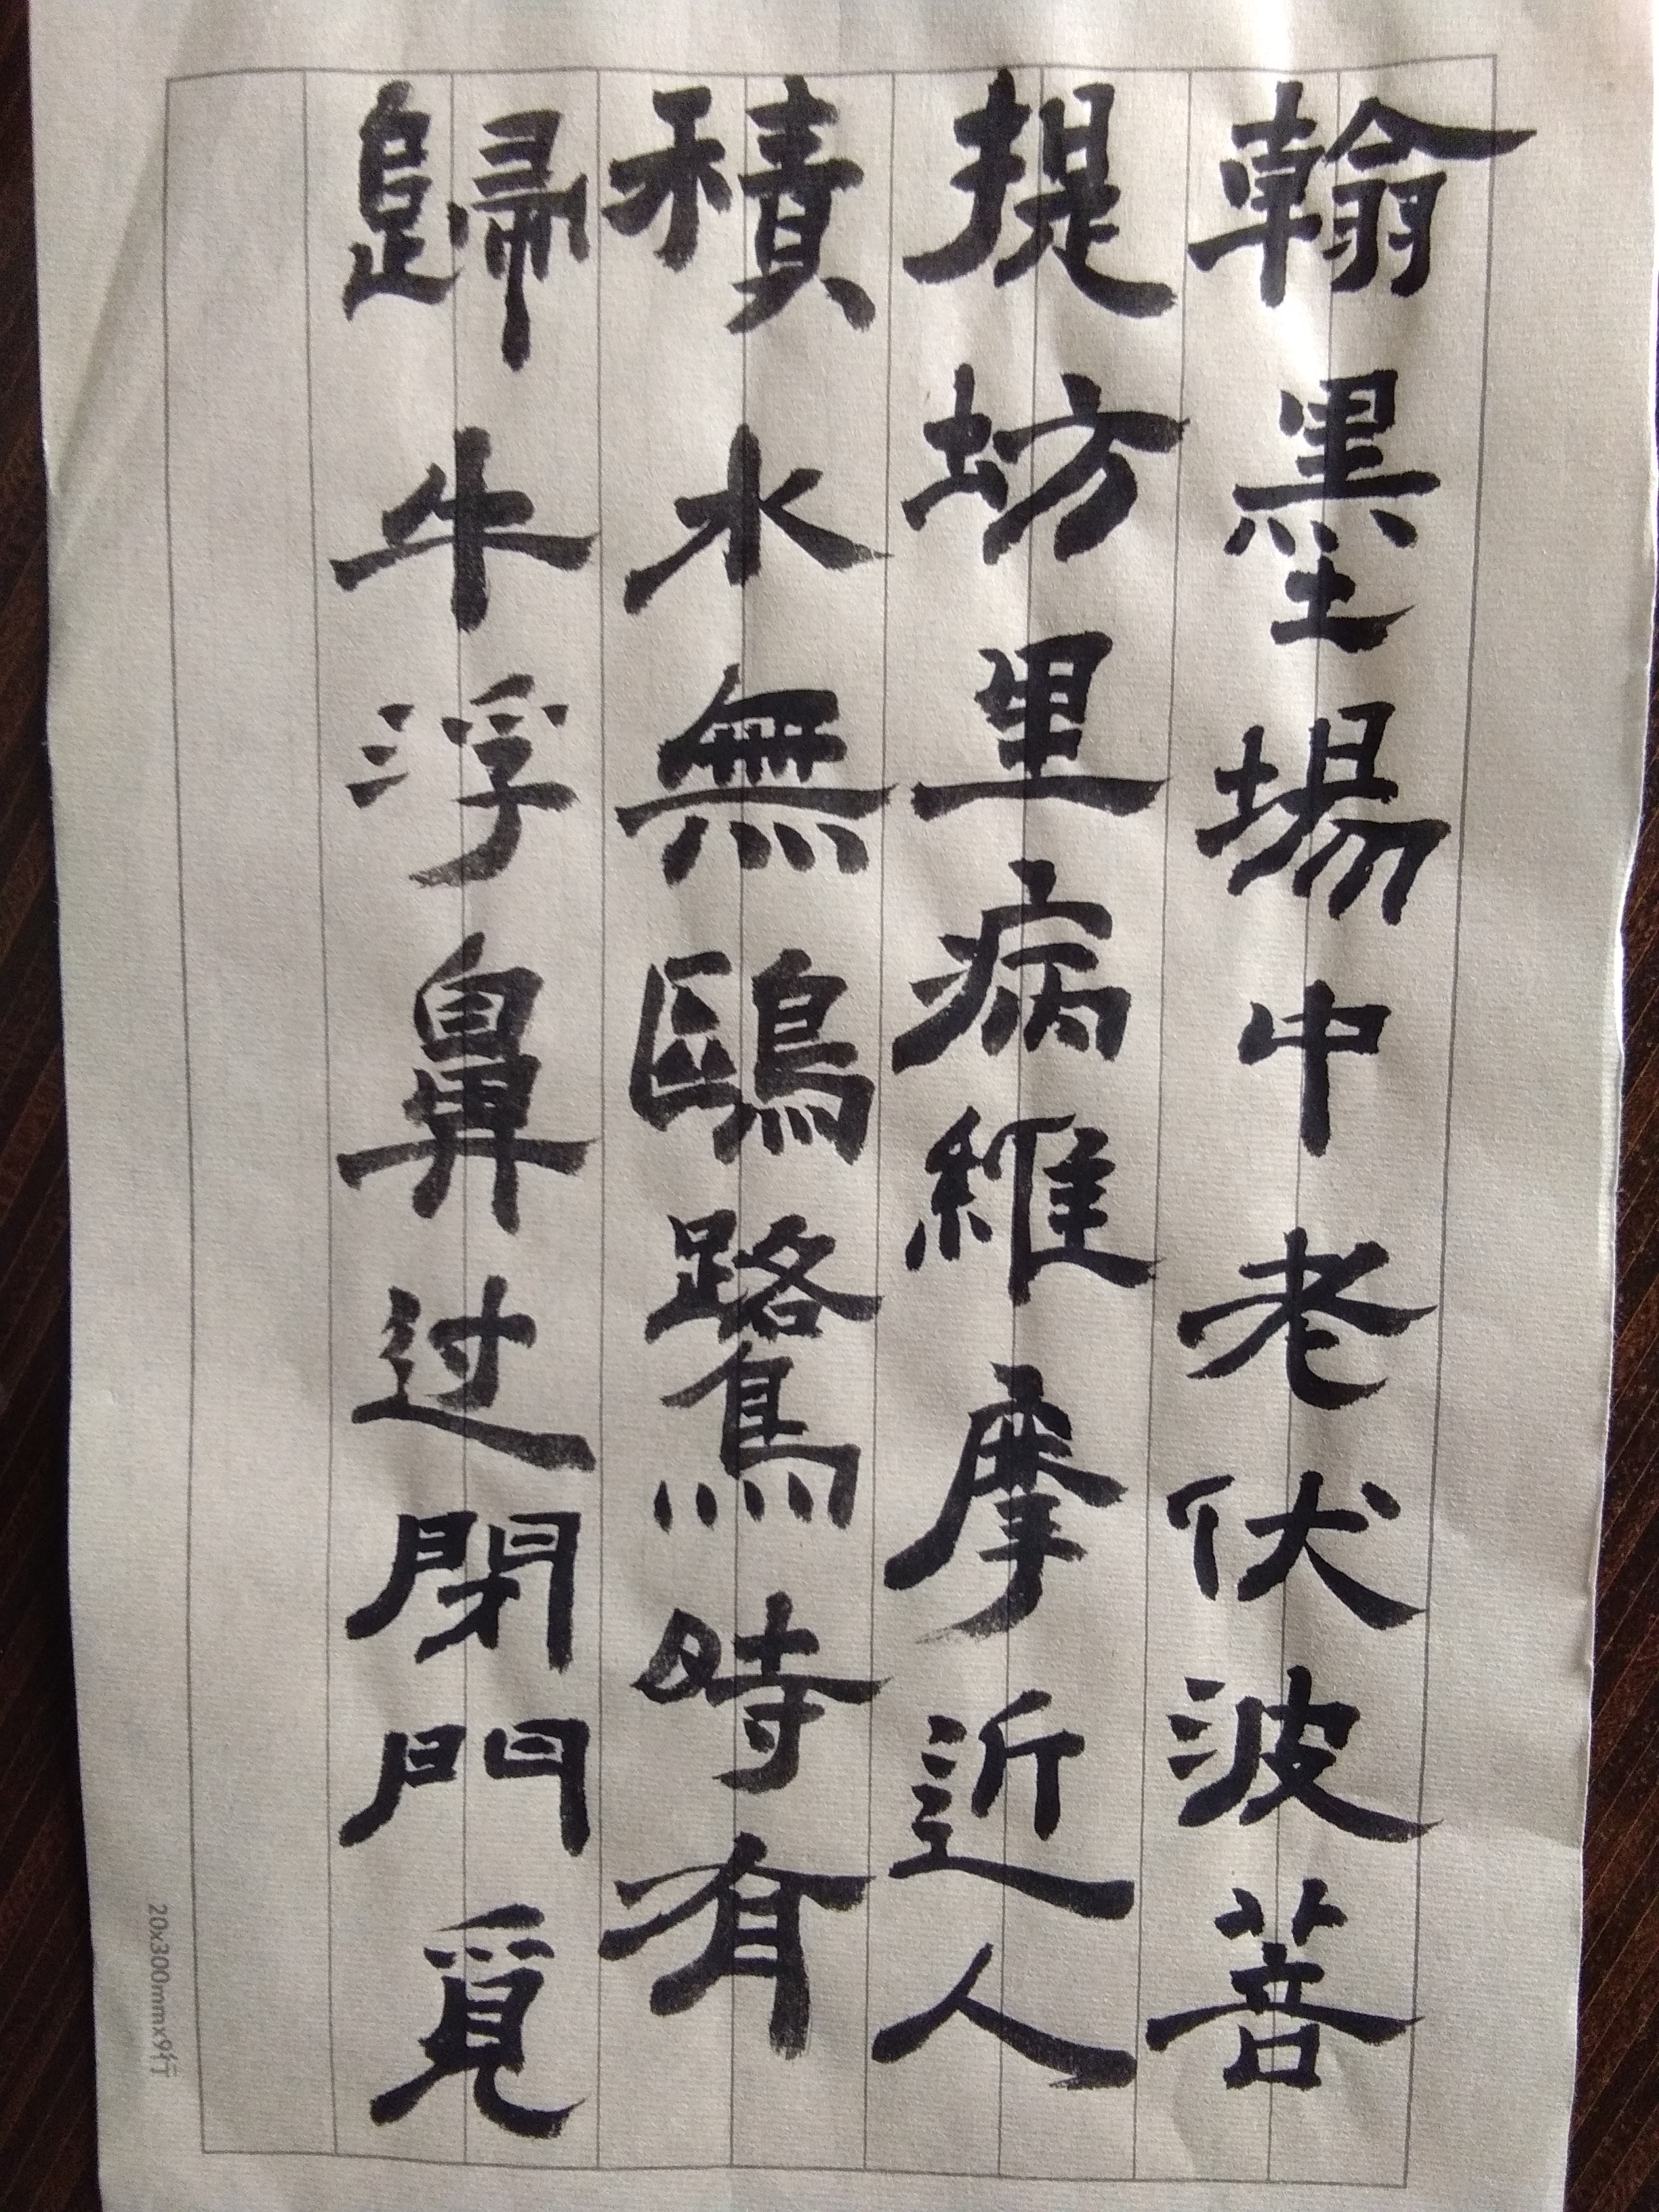 翰墨場中老伏波菩
提坊里病維摩近人
積水無鷗鷺時有
歸牛浮鼻过閉門覓
20x300mmx9行